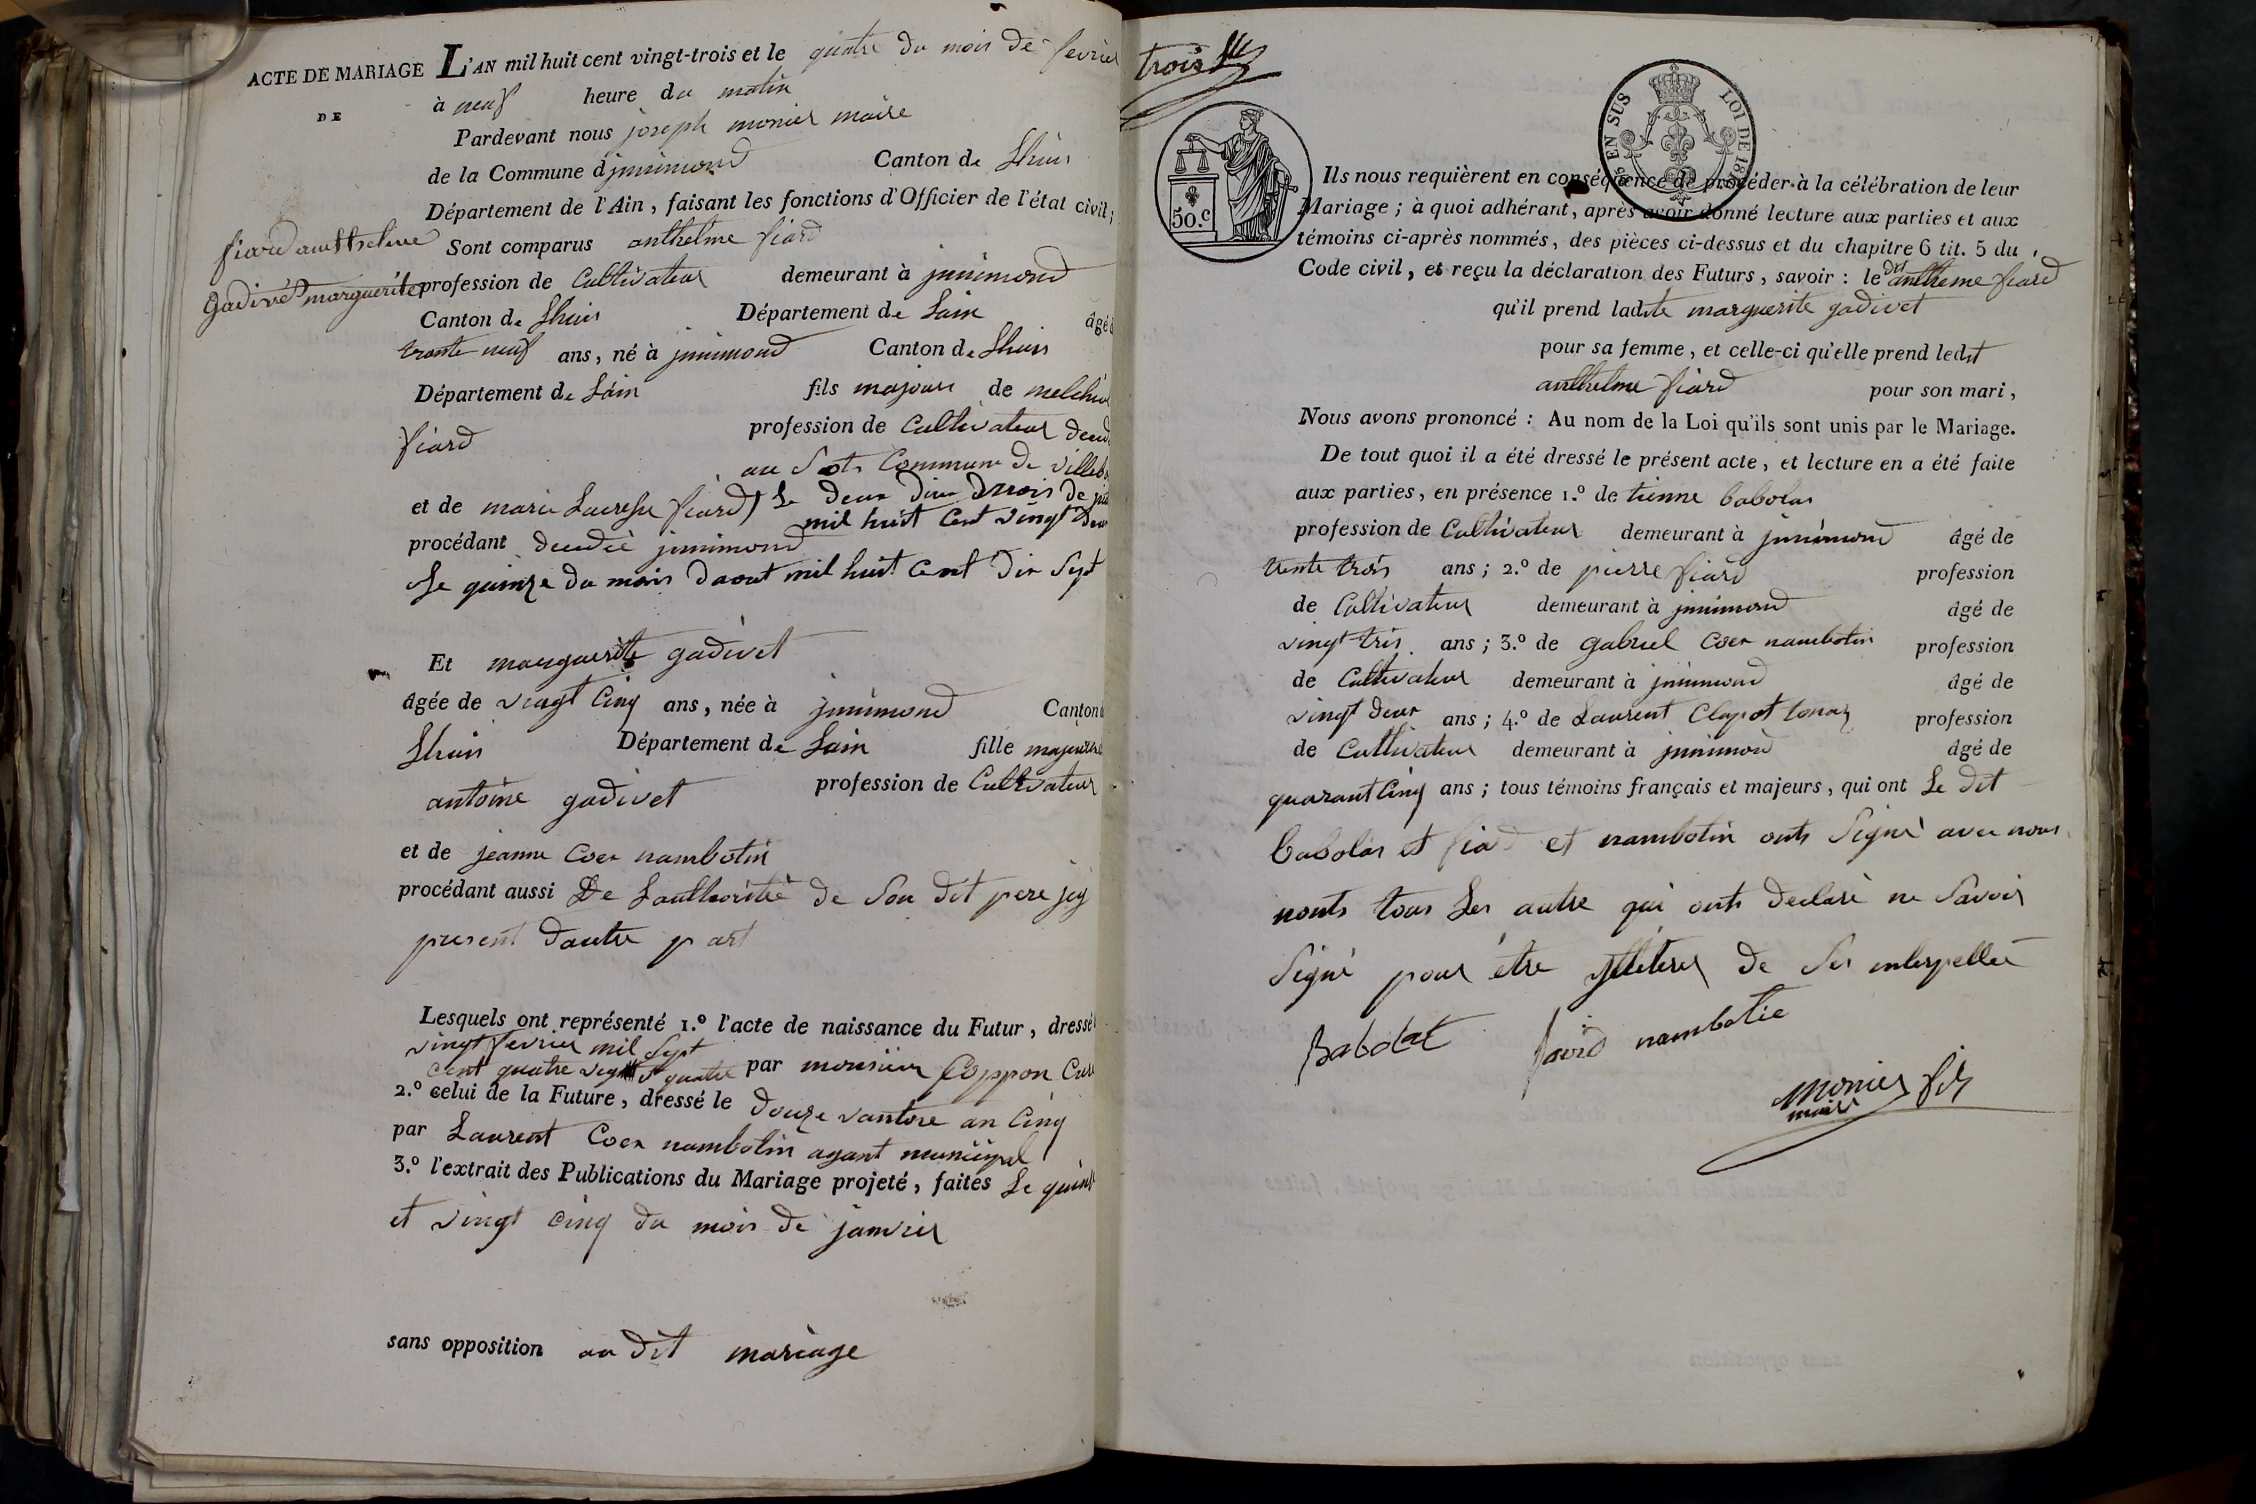 ACTE DE MARIAGE
DE
fiard antthelme
gadivé marguerite
L'AN mil huit cent vingt-trois et le quatre du mois de fevrier
à neuf heure du matin
Pardevant nous joseph monier maire
de la Commune d jnnimond Canton de Lhuis
Département de l'Ain, faisant les fonctions d'Officier de l'état civil;
Sont comparus anthelme fiard
profession de Cultivateur demeurant à jnnimond
Canton de Lhuis Département de Lain âgé d
trante neuf ans, né à jnnimond Canton de Lhuis
Département de Láin fils majeur de melchior
fiard profession de Cultivateur
au Commune de
et de marie fiard Le deux mois de
mil huit Cent vingt deux
procédant jnnimond
Le quinze du mois daout mil huit Cent dix Sept
Et marguerite gadivet
âgée de vingt Cinq ans, née à jnnimond Canton
Lhuis Département de Lain fille majeure
antoine gadivet profession de Cultivateur
et de jeanne Coex nambotin
procédant aussi De Lauthoritié de Son dit pere jcy
present dautre part
Lesquels ont représenté 1.º l'acte de naissance du Futur, dressé
vingt fevrier mil Sept
Cent quatre vingt quatre par monsieur Coppon Curé
2.º celui de la Future, dressé le douze vantose an Cinq
par Laurent Coex nambotin agant municipal
3.º l'extrait des Publications du Mariage projeté, faites Le
et vingt cinq du mois de janvier
sans opposition au dit mariage
trois
50.C
EN SUS
LOI DE 181
Ils nous requièrent en conséquence de procéder à la célébration de leur
Mariage; à quoi adhérant, après avoir donné lecture aux parties et aux
témoins ci-après nommés, des pièces ci-dessus et du chapitre 6 tit. 5 du
Code civil, et reçu la déclaration des Futurs, savoir: le dit antheme fiard
qu'il prend ladite marguerite gadivet
pour sa femme, et celle-ci qu'elle prend ledit
anthelme fiard pour son mari,
Nous avons prononcé: Au nom de la Loi qu'ils sont unis par le Mariage.
De tout quoi il a été dressé le présent acte, et lecture en a été faite
aux parties, en présence 1.º de tienne babolas
profession de Cultivateur demeurant à jnnimond âgé de
trente trois ans; 2.º de pierre fiard profession
de Cultivateur demeurant à jnnimond âgé de
vingt tris ans; 3.º de gabriel Coex nambotin profession
de Cultivateur demeurant à jnnimond âgé de
vingt deux ans; 4.º de Laurent Clapot profession
de Cultivateur demeurant à jnnimond âgé de
quarant Cinq ans; tous témoins français et majeurs, qui ont Le dit
babolas et fiard et nambotin onts Signé avec nous
nonts tous Les autre qui onts declaré ne Savoir
Signé pour être de Ses interpellée
Babolat fiard nambotie
monier fils
maire